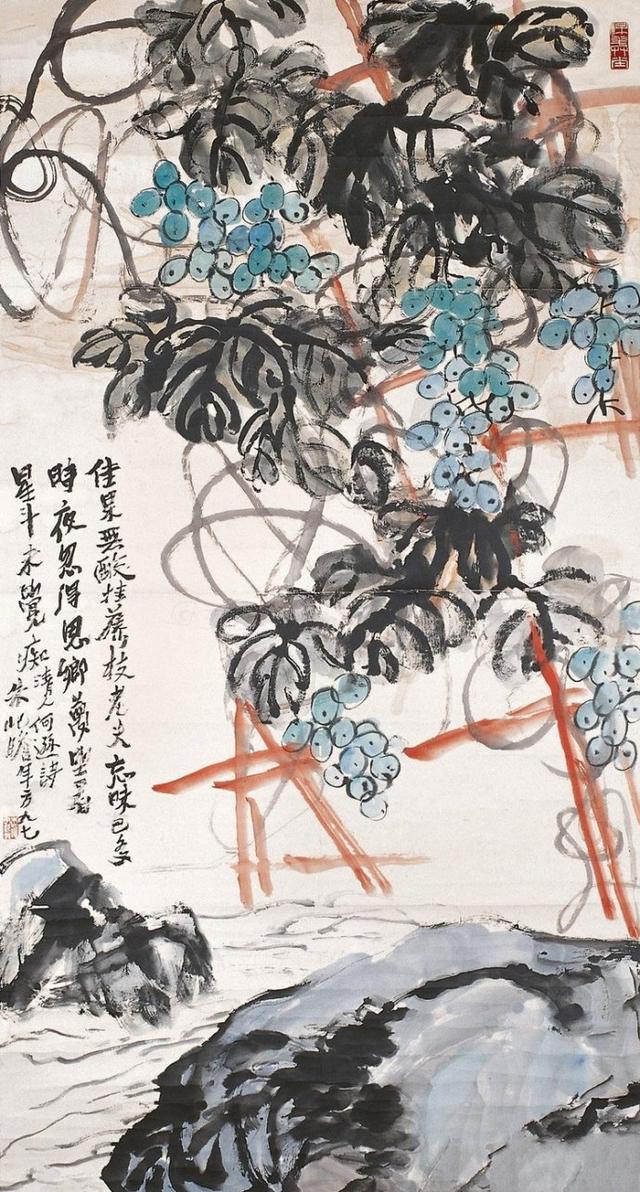 佳果無酸挂枝老夫忘味已多
時夜忽得思鄉夢坐看
星斗未覺痴清人何詩
朱屺瞻年方九七